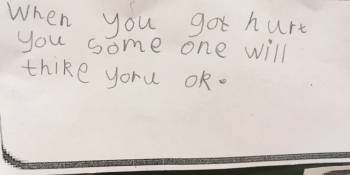 When you got hurt
you some one will
thike yoru ok.